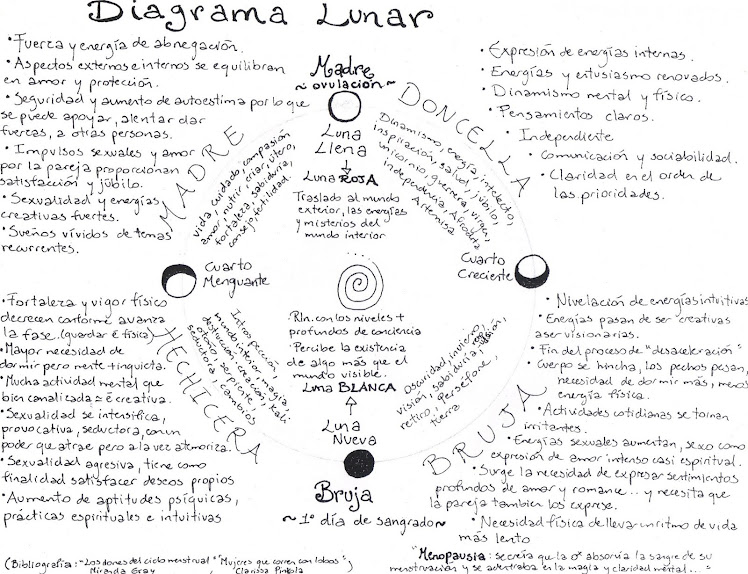 Diagrama Lunar
• Fuerza y energía de abnegación.
• Aspectos externos e internos se equilibran
en amor y protección.
• Seguridad y aumento de autoestima por lo que
se puede apoyar, alentar dar
fuerzas, a otras personas.
• Impulsos sexuales y amor
por la pareja proporcionan
satisfacción y júbilo.
• Sexualidad y energías
creativas fuertes.
• Sueños vívidos de temas
recurrentes.
MADRE
vida, cuidado, compasión
amor, nutrir, criar, útero,
fortaleza, sabiduría,
consejo, fertilidad.
Madre
~ ovulación ~
Luna
Llena
Luna ROJA
Traslado al mundo
exterior, las energías
y misterios del
mundo interior
DONCELLA
Dinamismo, energía, intelecto,
inspiración, salud, júbilo,
unicornio, guerrera, virgen,
independencia, Afrodita
Artemisa
• Expresión de energías internas.
• Energías y entusiasmo renovados.
• Dinamismo mental y físico.
• Pensamientos claros.
• Independiente
• Comunicación y sociabilidad.
• Claridad en el orden de
las prioridades.
Cuarto
Menguante
Cuarto
Creciente
• Fortaleza y vigor físico
decrecen conforme avanza
la fase. (guardar é física)
• Mayor necesidad de
dormir pero mente + inquieta.
• Mucha actividad mental que
bien canalizada = é creativa.
• Sexualidad se intensifica,
provocativa, seductora, con un
poder que atrae pero a la vez atemoriza.
• Sexualidad agresiva, tiene como
finalidad satisfacer deseos propios
• Aumento de aptitudes psíquicas,
prácticas espirituales e intuitivas
HECHICERA
Introspección,
mundo interior, magia,
destrucción, creación, Kali
otoño, serpiente,
seductora, cambios
• Rln. con los niveles +
profundos de conciencia
• Percibe la existencia
de algo más que el
mundo visible.
Luna BLANCA
Luna
Nueva
Bruja
~ 1º día de sangrado ~
BRUJA
Oscuridad, invierno,
visión, sabiduría,
retiro, Perséfone,
tierra
• Nivelación de energías intuitivas
• Energías pasan de ser creativas
a ser visionarias.
• Fin del proceso de "desaceleración"
• Cuerpo se hincha, los pechos pesan,
necesidad de dormir más, menos
energía física.
• Actividades cotidianas se tornan
irritantes.
• Energías sexuales aumentan, sexo como
expresión de amor intenso casi espiritual.
• Surge la necesidad de expresar sentimientos
profundos de amor y romance... y necesita que
la pareja tambien los exprese.
• Necesidad física de llevar un ritmo de vida
más lento
"Menopausia: se creía que la ♀ absorvía la sangre de su
menstruación y se adentraba en la magia y claridad mental..."
(Bibliografía: "Los dones del ciclo menstrual" "Mujeres que corren con lobos")
Miranda Gray, Clarissa Pinkola